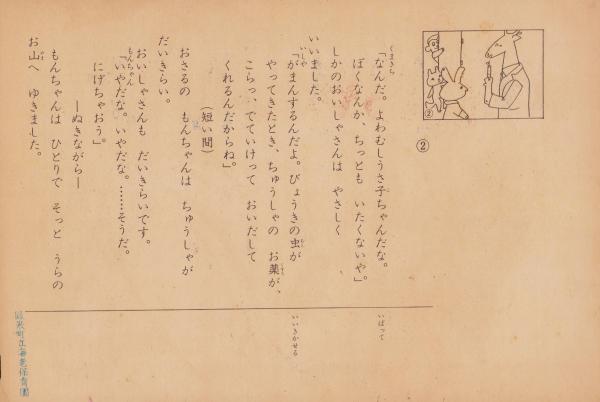 ②
②
くまきち
「なんだ。よわむしうさ子ちゃんだな。
ぼくなんか、ちっとも いたくないや」。
しかのおいしゃさんは やさしく
いいました。
いしゃ
「がまんするんだよ。びょうきの虫が
やってきたとき、ちゅうしゃの お薬が、
こらっ、でていけって おいだして
くれるんだからね」。
(短い間)
おさるの もんちゃんは ちゅうしゃが
だいきらい。
おいしゃさんも だいきらいです。
もんちゃん
「いやだな。いやだな。……そうだ。
にげちゃおう」。
―ぬきながら―
もんちゃんは ひとりで そっと うらの
お山へ ゆきました。
いばって
いいきかせる